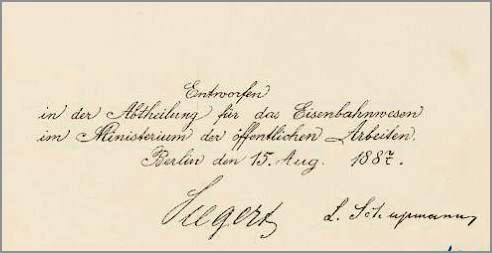 Entworfen
in der Abtheilung für das Eisenbahnwesen
im Ministerium der öffentlichen Arbeiten.
Berlin den 15. Aug. 1887.
Siegert L. Schupmann